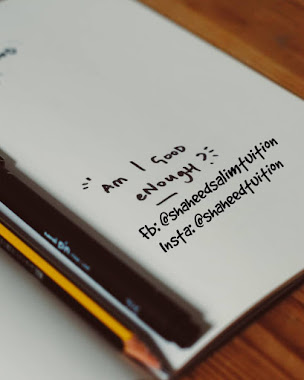 Am I GOOD
eNouGH?
Fb: @shaheedsalimtuition
Insta: @shaheedtuition